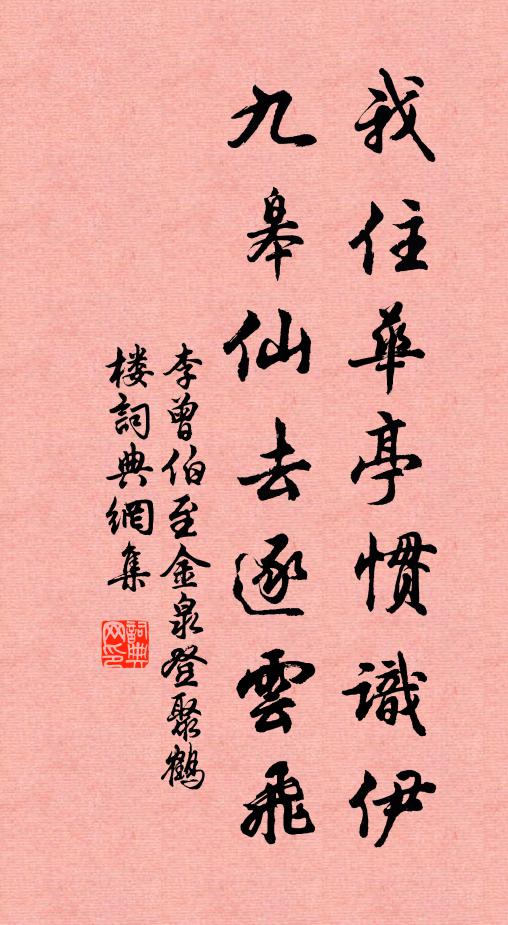 我住華亭慣識伊
九皋仙去逐雲飛
李曾伯至金泉登聚鶴
楼詞典網集
詞典网印